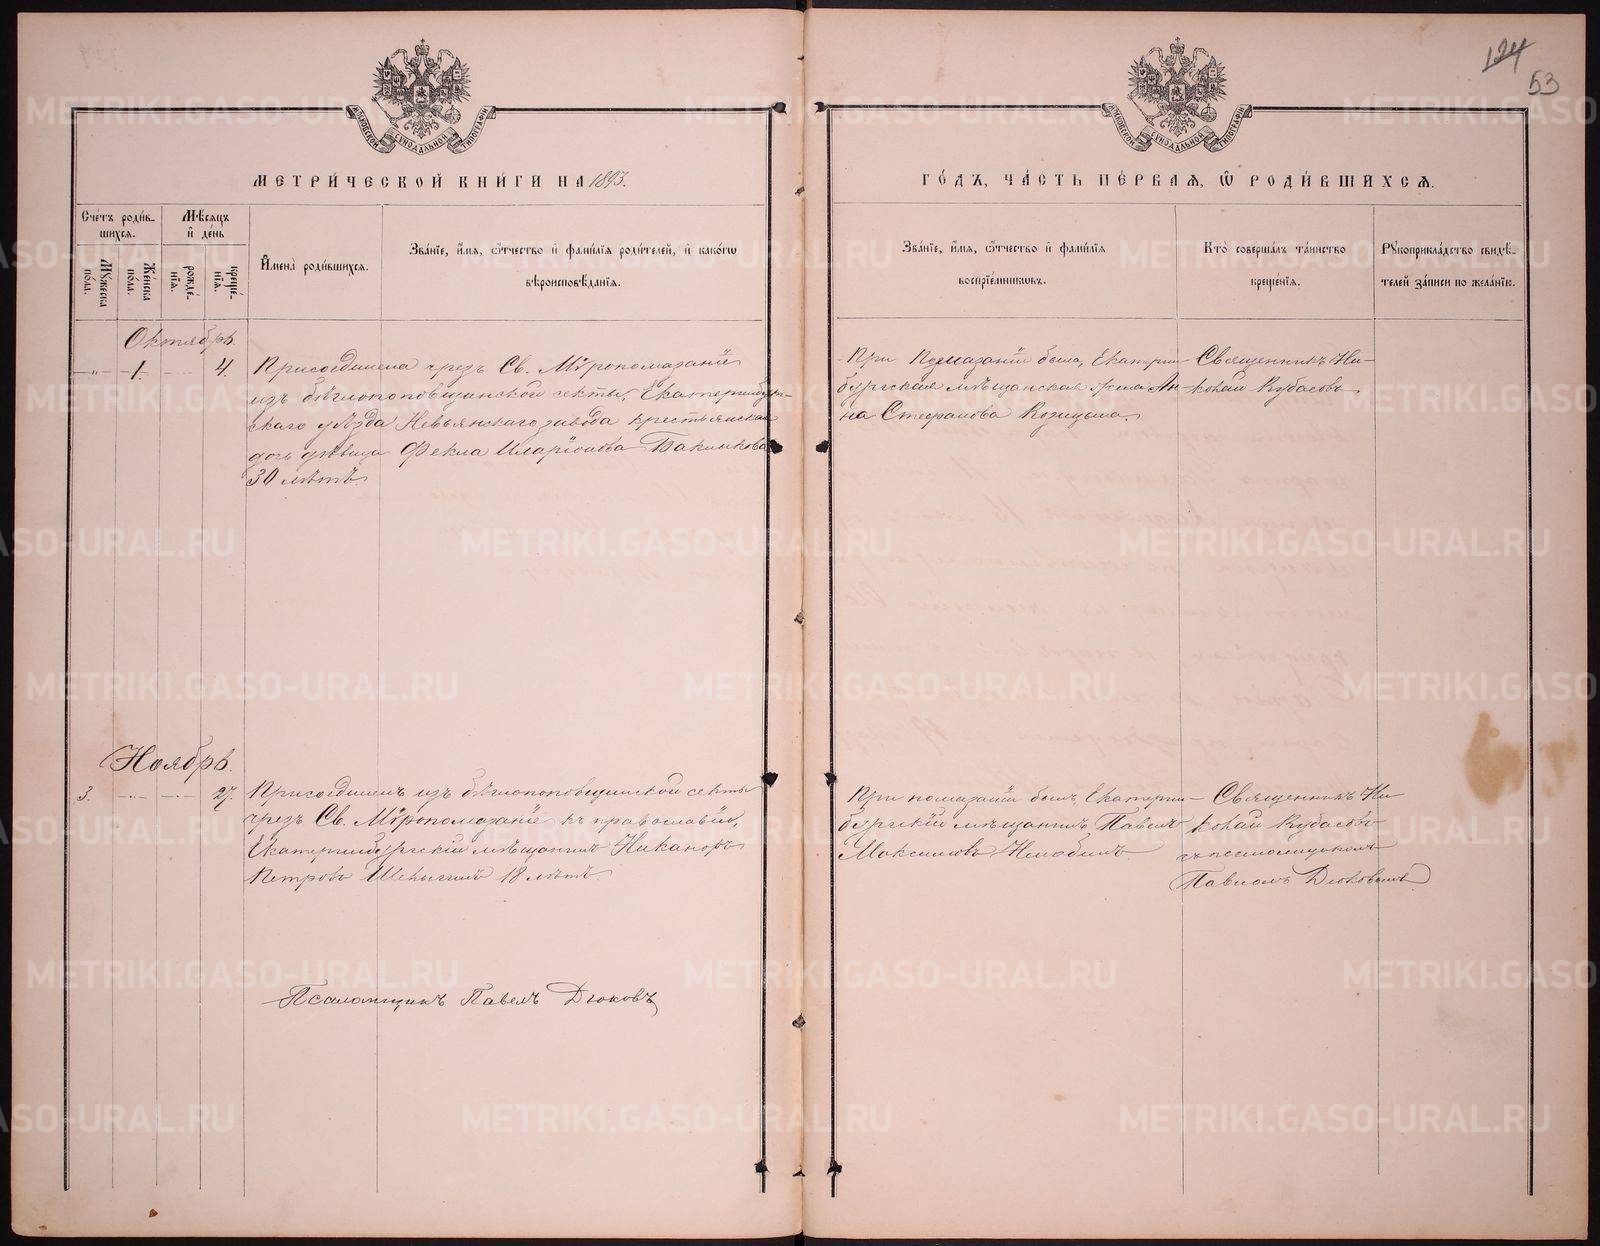 124
53
МОСКОВСКОЙ СѴНОДАЛЬНОЙ ТИПОГРАФІИ
МОСКОВСКОЙ СѴНОДАЛЬНОЙ ТИПОГРАФІИ
МЕТРИЧЕСКОЙ КНИГИ НА 1893.
ГОДЪ, ЧАСТЬ ПЕРВАЯ, Ѡ РОДИВШИХСЯ.
Счетъ родив-
шихся.
Мѣсяцъ
и день
Мужеска
пола.
Женска
пола.
рожде-
нія.
креще-
нія.
Имена родившихся.
Званіе, имя, ѿчество и фамилія родителей, и какогѡ
вѣроисповѣданія.
Званіе, имя, ѿчество и фамилія
воспріемникѡвъ.
Кто совершалъ таинство
крещенія.
Рукоприкладство свидѣ-
телей записи по желанію.
Октябрь.
1. 4. Присоединена чрезъ Св. Мѵропомазаніе
изъ бѣглопоповщинской секты, Екатеринбург-
скаго уѣзда Невьянскаго завода крестьянская
дочь дѣвица Фекла Иларіонова
30 лѣтъ.
При помазаніи была, Екатерин-
бургская мѣщанская жена Ан-
на Стефанова Козицына.
Священникъ Ни-
колай Кубасовъ.
Ноябрь.
3. 27. Присоединенъ изъ бѣглопоповщинской секты
чрезъ Св. Мѵропомазаніе къ православію,
Екатеринбургскій мѣщанинъ Никаноръ
Петровъ 18 лѣтъ.
При помазаніи былъ, Екатерин-
бургскій мѣщанинъ Павелъ
Максимовъ
Священникъ Ни-
колай Кубасовъ
съ псаломщикомъ
Павломъ Дюковымъ
Псаломщикъ Павелъ Дюковъ
METRIKI.GASO-URAL.RU